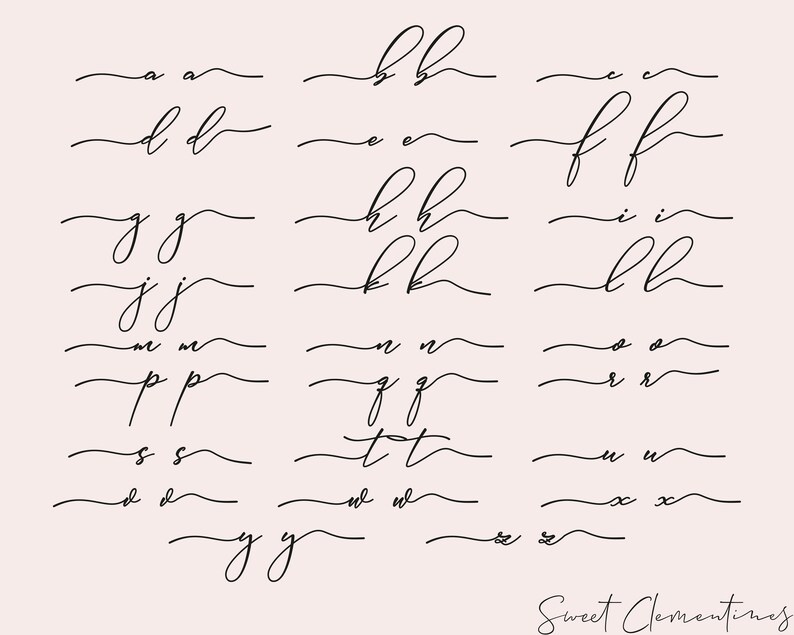 a a b b c c
d d e e f f
g g h h i i
j j k k l l
m m n n o o
p p q q r r
s s t t u u
v v w w x x
y y z z
Sweet Clementines